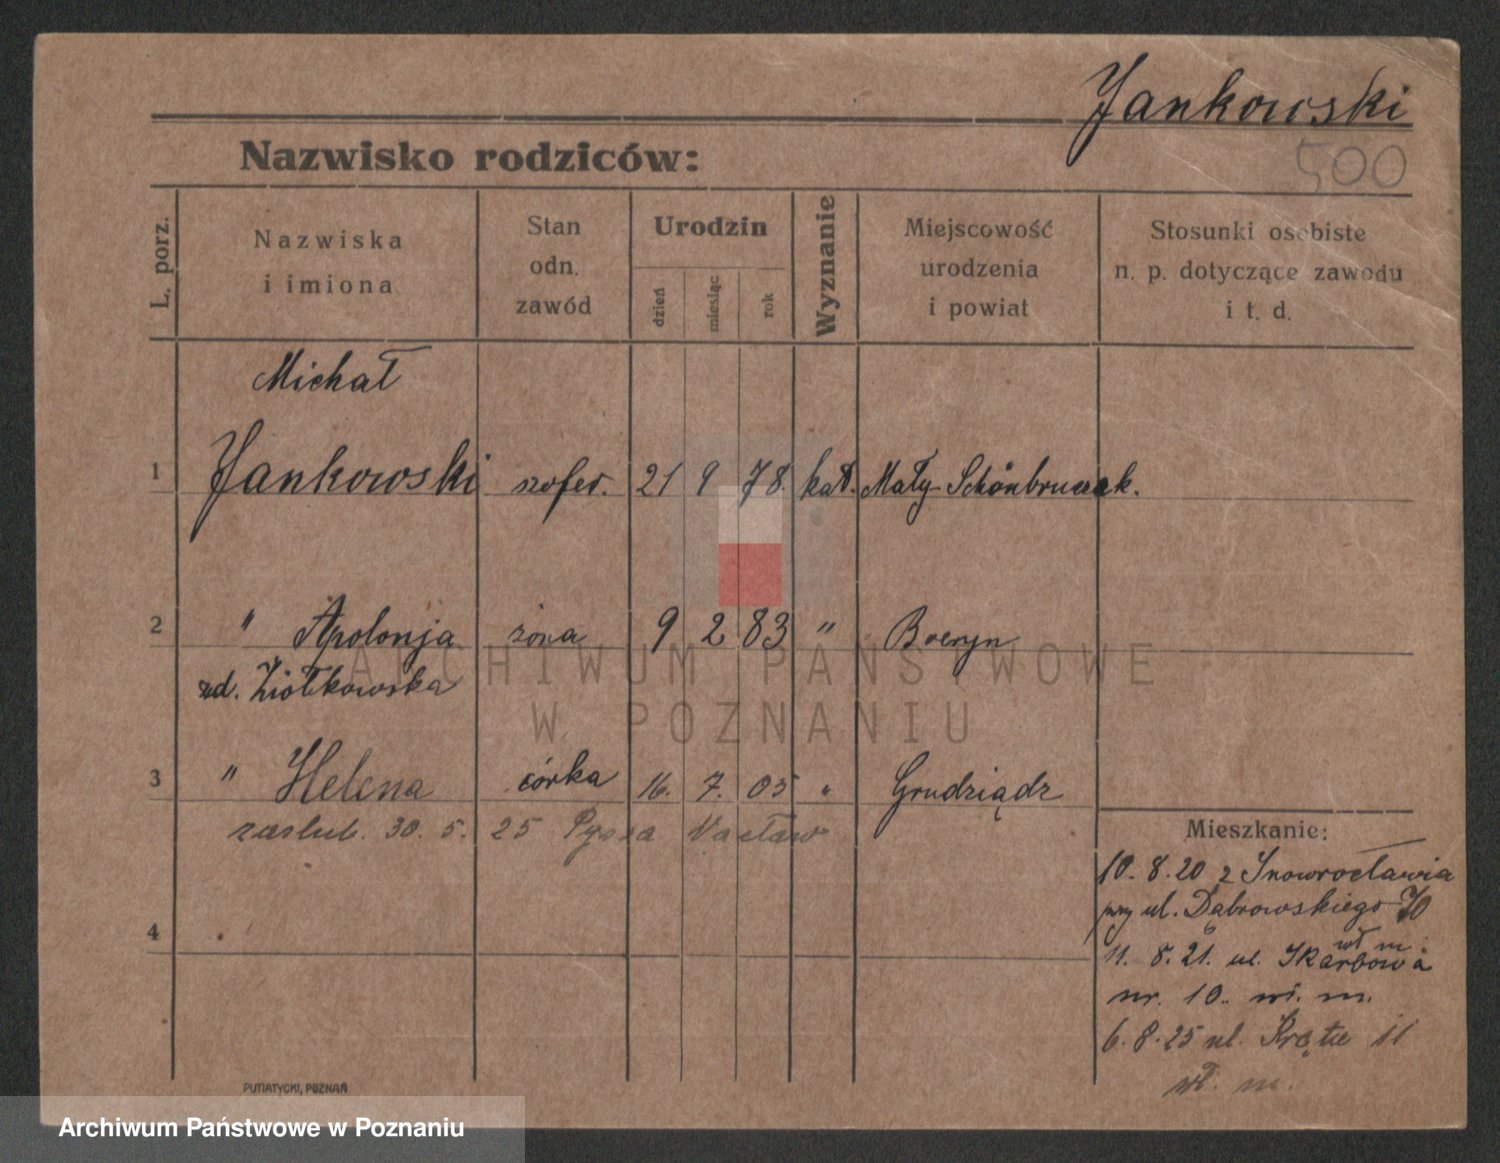 Jankowski
500
Nazwisko rodziców:
L. porz.
Nazwiska
i imiona
Stan
odn.
zawód
Urodzin
dzień
miesiąc
rok
Wyznanie
Miejscowość
urodzenia
i powiat
Stosunki osobiste
n. p. dotyczące zawodu
i t. d.
Michał
1 Jankowski szofer. 21 9 78. kat. Mały-
2 " Apolonja żona 9 2 83 "
zd. Ziółkowska
3 " Helena córka 16. 7. 05 " Grudziądz
zaślub. 30. 5. 25 Wacław
4
Mieszkanie:
10. 8. 20 z Inowrocławia
przy ul. Dąbrowskiego 70
wł. m.
11. 8. 21. ul. Skarbowa
nr. 10. wł. m.
6. 8. 25 ul. Kręte 11
wł. m.
PUTIATYCKI, POZNAŃ
ARCHIWUM PAŃSTWOWE
W POZNANIU
Archiwum Państwowe w Poznaniu